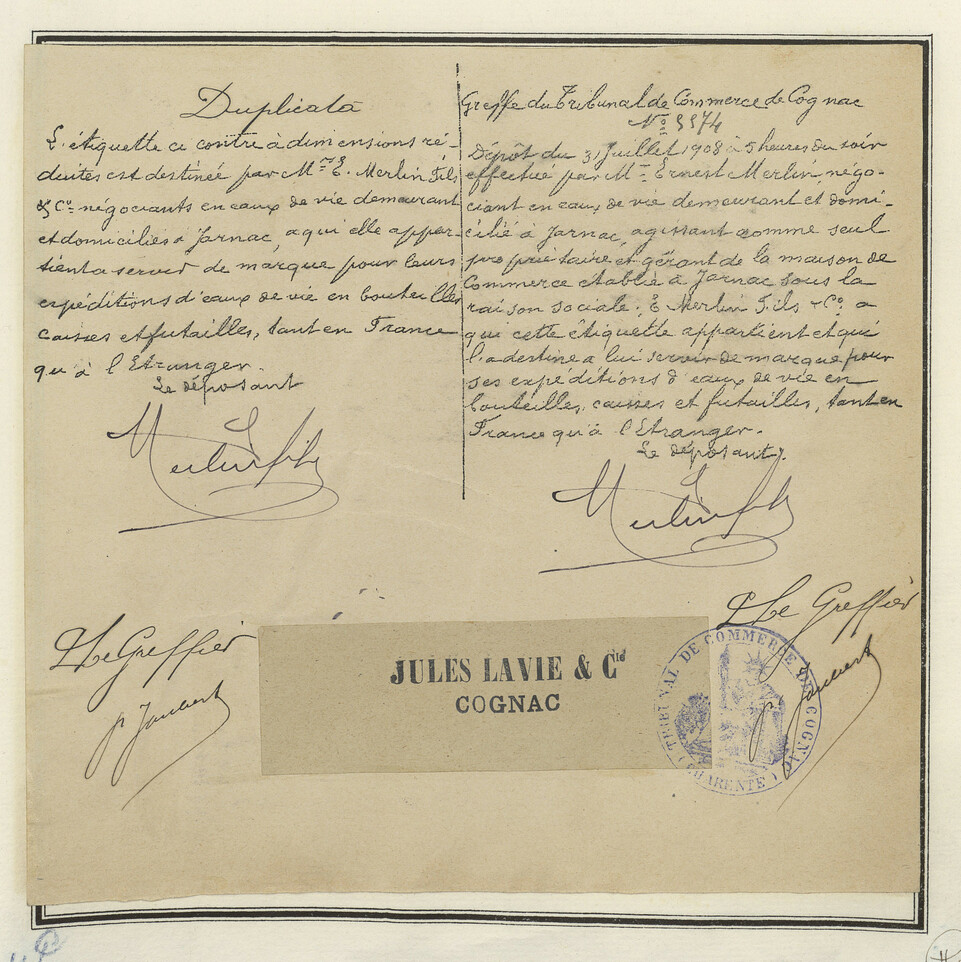 Duplicata
L'étiquette ci contre à dimensions ré-
duites est destinée par Mrs E. Merlin Fils
& Co négociants en eaux de vie demeurant
et domiciliés à Jarnac, a qui elle appar-
tient a servir de marque pour leurs
expéditions d'eaux de vie en bouteilles
caisses et futailles, tant en France
qu'à l'Etranger.
Le déposant
Merlin fils
Le Greffier
p. Joubert
Greffe du Tribunal de Commerce de Cognac
No 5574
Dépôt du 31 Juillet 1908 à 5 heures du soir
effectué par Mr Ernest Merlin, négo-
ciant en eaux de vie demeurant et domi-
cilié à Jarnac, agissant comme seul
propriétaire et gérant de la maison de
Commerce établie à Jarnac sous la
raison sociale: E Merlin Fils & Co a
qui cette étiquette appartient et qui
l'a destine a lui servir de marque pour
ses expéditions d'eaux de vie en
bouteilles, caisses et futailles, tant en
France qu'à l'Etranger.
Le déposant.
Merlin fils
Le Greffier
p. Joubert
JULES LAVIE & Cie
COGNAC
TRIBUNAL DE COMMERCE DE COGNAC
(CHARENTE)